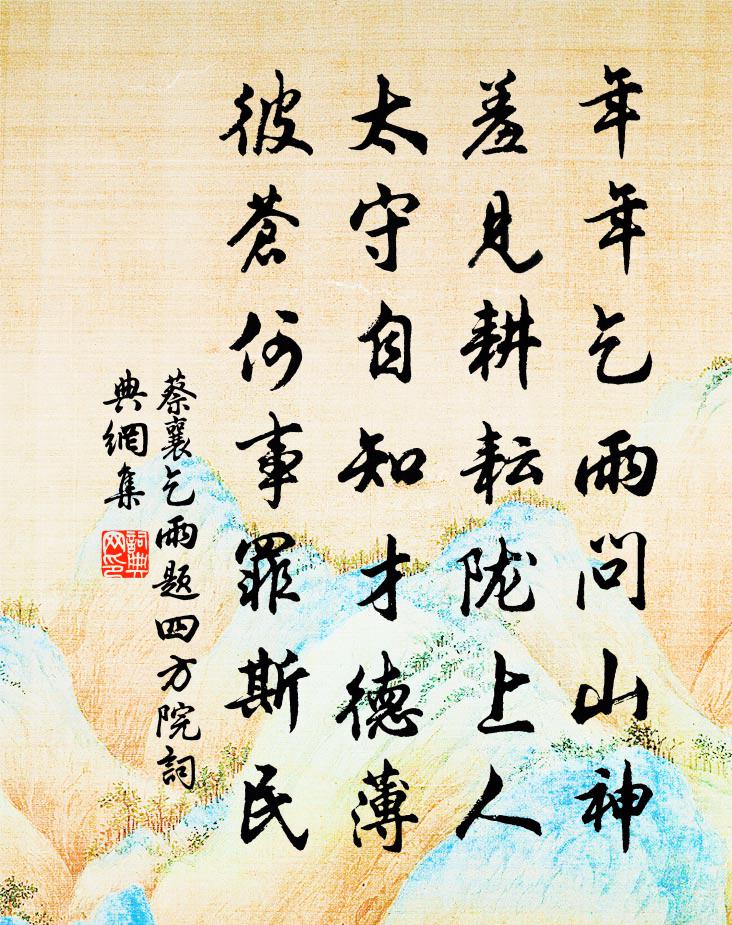 年年乞雨问山神
羞见耕耘陇上人
太守自知才德薄
彼苍何事罪斯民
蔡襄乞雨题四方院词
典網集
詞典網印